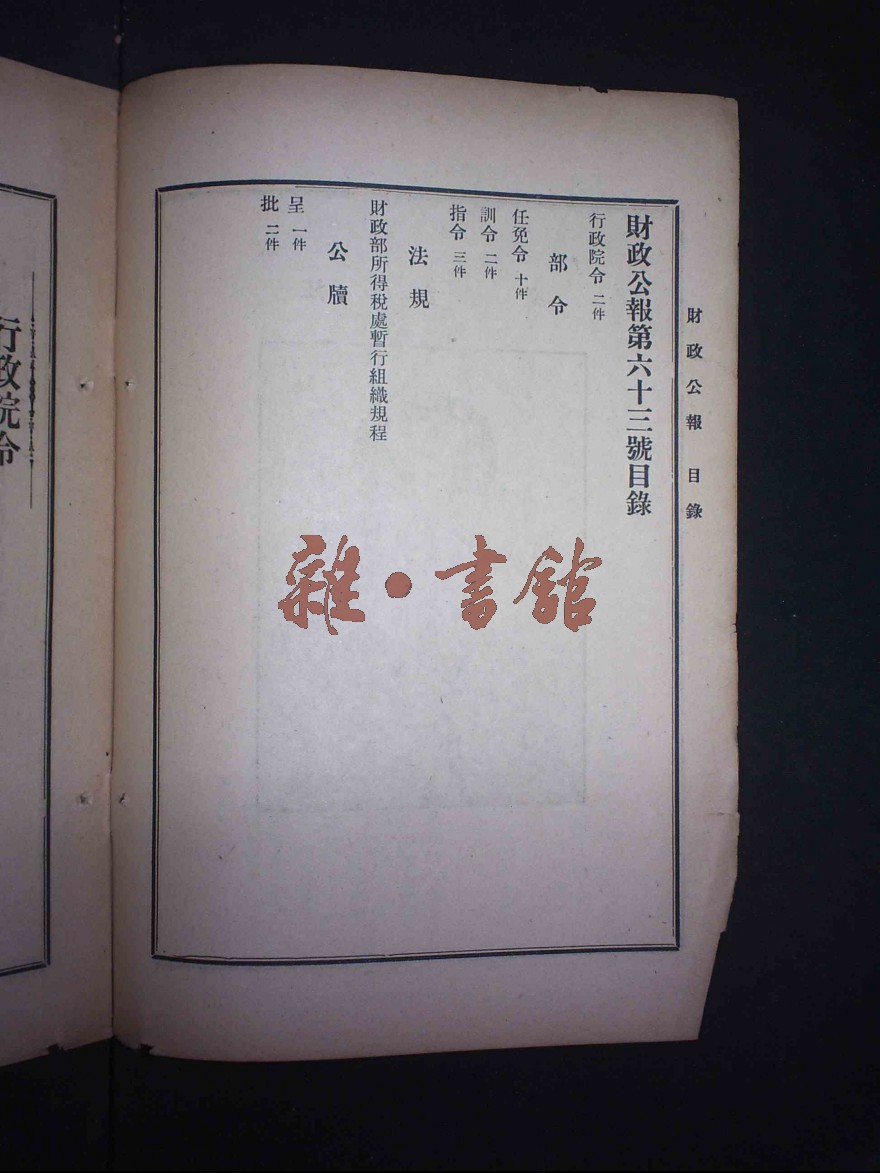 財政公報 目錄
財政公報第六十三號目錄
行政院令 二件
部令
任免令 十件
訓令 二件
指令 三件
法規
財政部所得稅處暫行組織規程
公牘
呈 一件
批 二件
雜·書館
行政院令